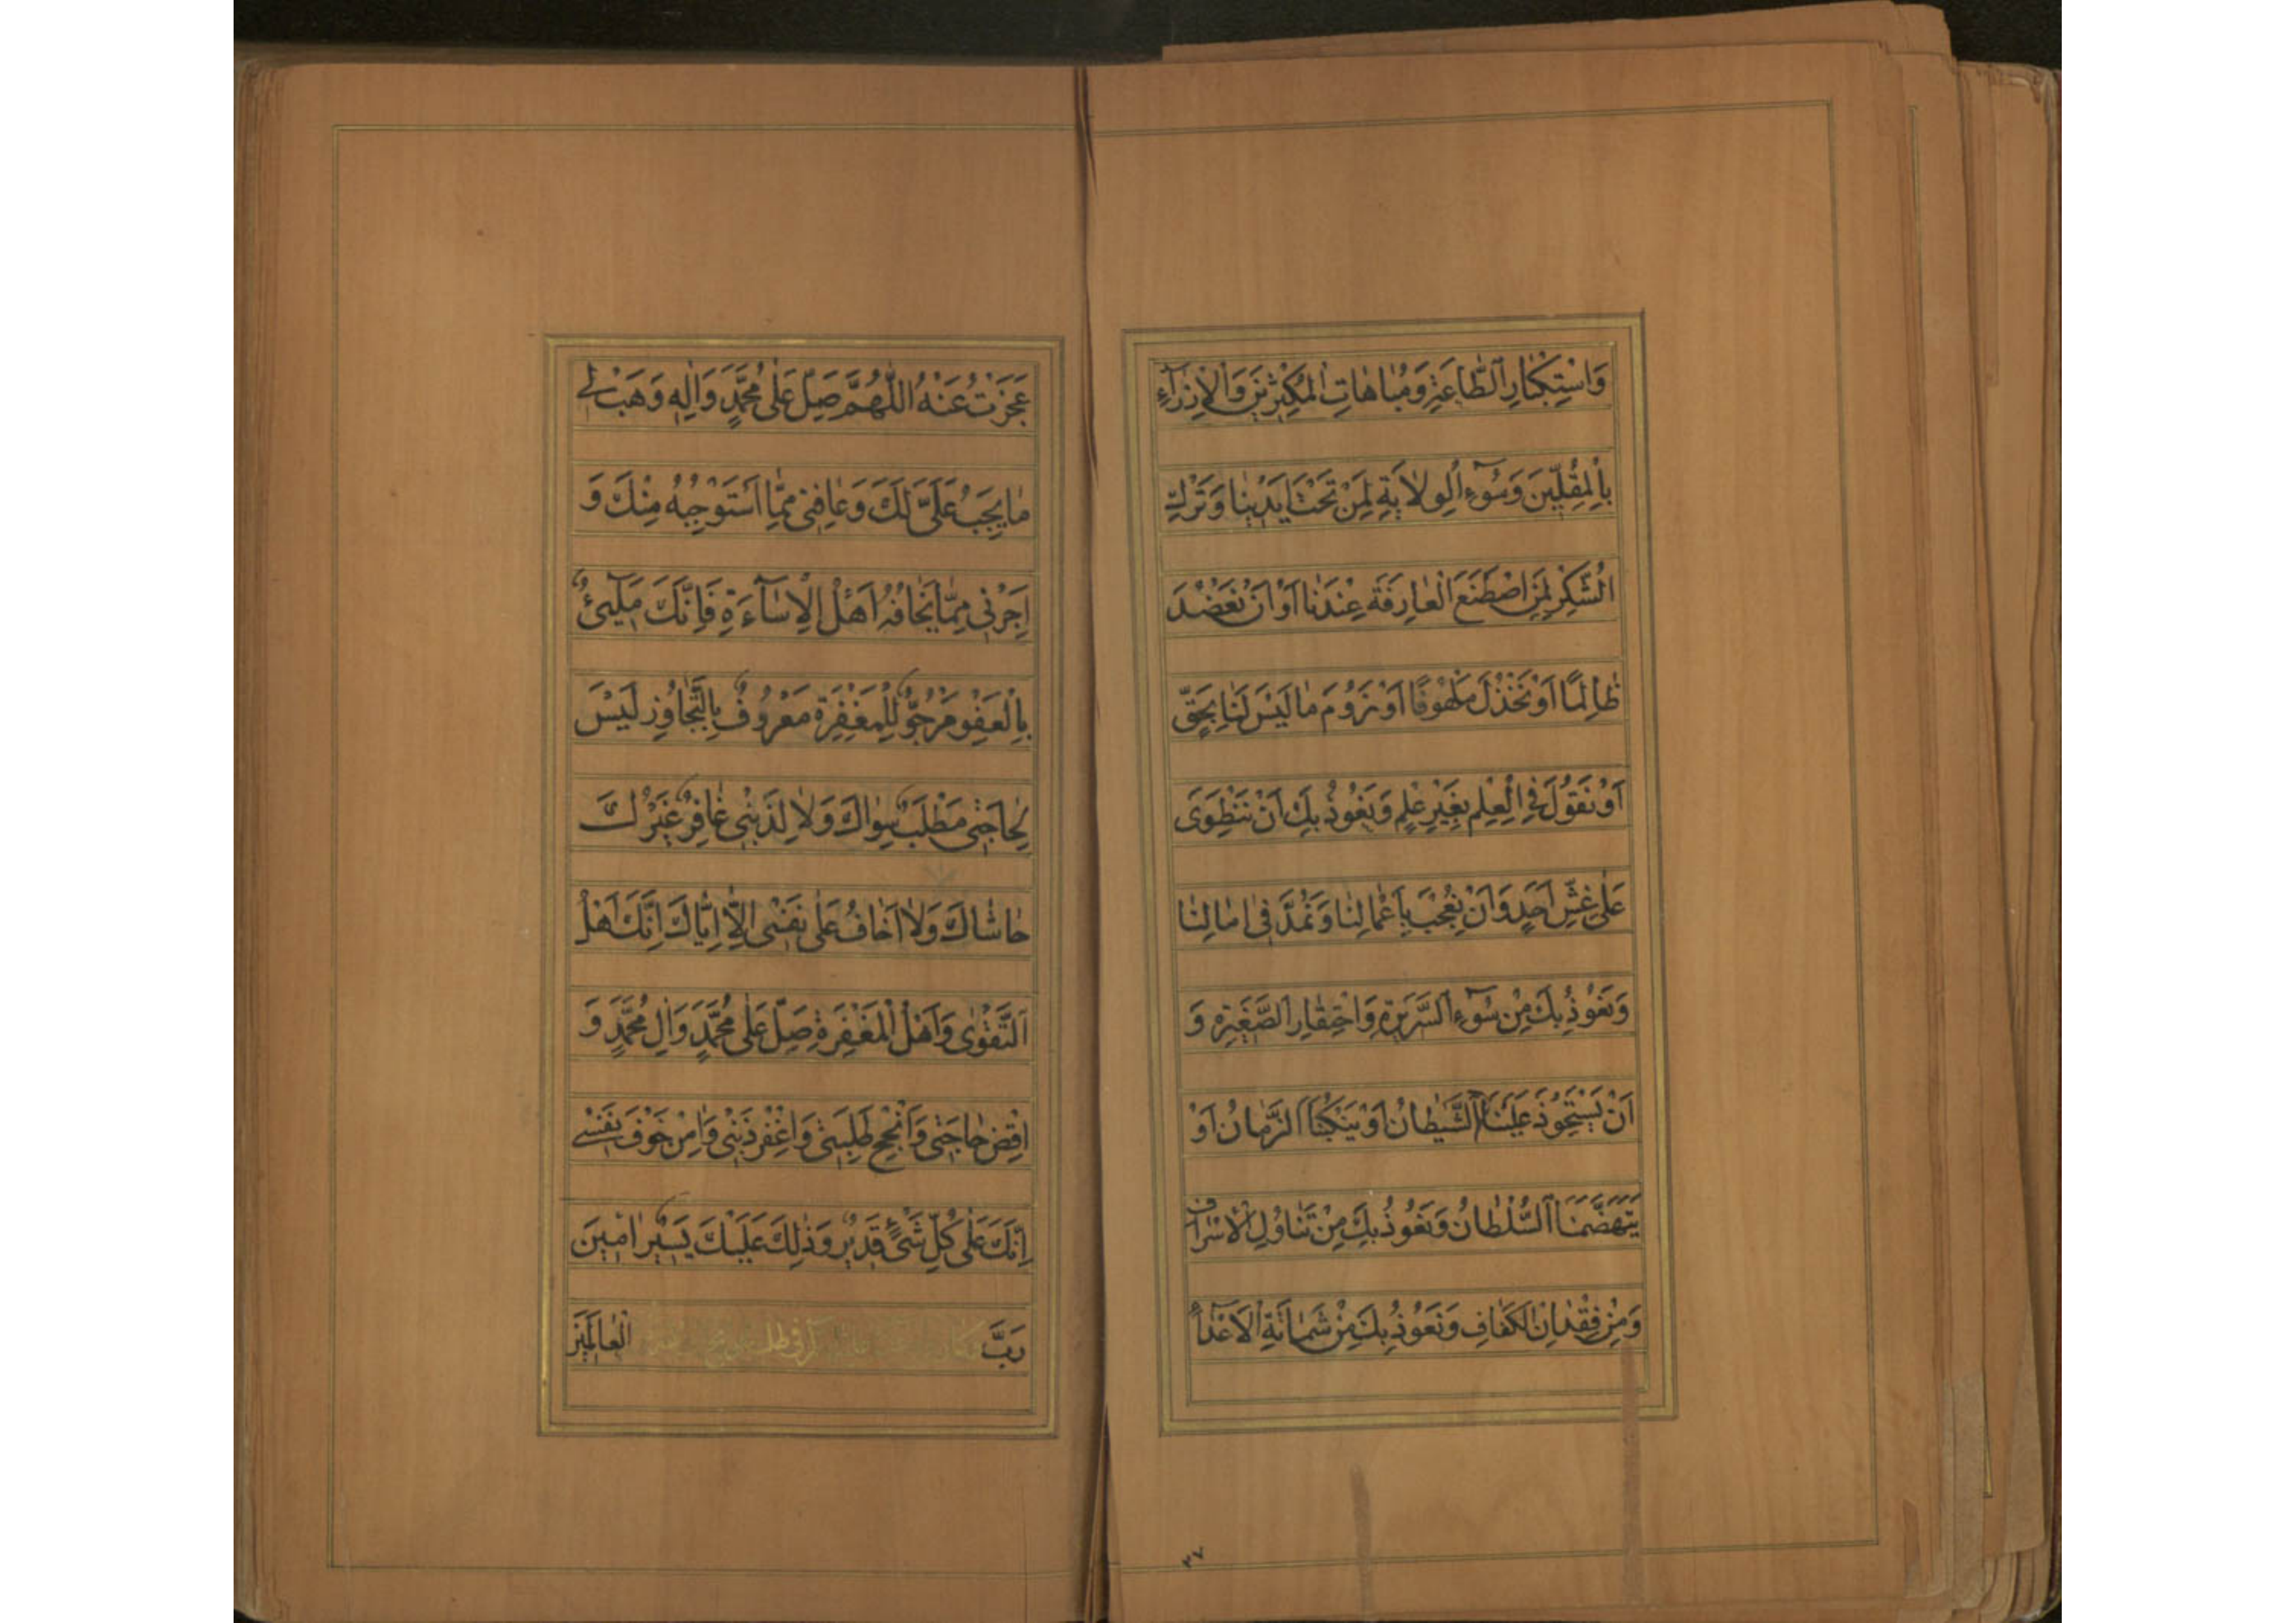 وَاسْتِكْثارِ الطّاعَةِ وَمُباهاتِ المُكْثِرينَ وَالْاِزْرآءِ
بِالْمُقِلّينَ وَسُوٓءِ الْوِلايَةِ لِمَنْ تَحْتَ اَيْدينا وَتَرْكِ
الشُّكْرِ لِمَنِ اصْطَنَعَ الْعارِفَةَ عِنْدَنا اَوْ اَنْ نَعْضُدَ
ظالِمًا اَوْ نَخْذُلَ مَلْهُوفًا اَوْ نَرُومَ ما لَيْسَ لَنا بِحَقٍّ
اَوْ نَقُولَ فِي الْعِلْمِ بِغَيْرِ عِلْمٍ وَنَعُوذُ بِكَ اَنْ نَنْطَوِىَ
عَلى غِشِّ اَحَدٍ وَاَنْ نُعْجِبَ بِاَعْمالِنا وَنَمُدَّ فى امالِنا
وَنَعُوذُ بِكَ مِنْ سُوٓءِ السَّريرَةِ وَاحْتِقارِ الصَّغيرَةِ وَ
اَنْ يَسْتَحْوِذَ عَلَيْنَا الشَّيْطانُ اَوْ يَنْكُبَنَا الزَّمانُ اَوْ
يَتَهَضَّمَنَا السُّلْطانُ وَنَعُوذُ بِكَ مِنْ تَناوُلِ الْاِسْرافِ
وَمِنْ فِقْدانِ الْكَفافِ وَنَعُوذُ بِكَ مِنْ شَماتَةِ الْاَعْدآءِ
٣٧
عَجَزْتُ عَنْهُ اللّهُمَّ صَلِّ عَلى مُحَمَّدٍ وَالِهِ وَهَبْ لى
ما يَجِبُ عَلَىَّ لَكَ وَعافِنى مِمّا اَسْتَوْجِبُهُ مِنْكَ وَ
اَجِرْنى مِمّا يَخافُهُ اَهْلُ الْاِسآءَةِ فَاِنَّكَ مَلِىٓءٌ
بِالْعَفْوِ مَرْجُوٌّ لِلْمَغْفِرَةِ مَعْرُوفٌ بِالتَّجاوُزِ لَيْسَ
لِحاجَتى مَطْلَبٌ سِواكَ وَلا لِذَنْبى غافِرٌ غَيْرُكَ
حاشاكَ وَلا اَخافُ عَلى نَفْسى اِلّا اِيّاكَ اِنَّكَ اَهْلُ
التَّقْوى وَاَهْلُ الْمَغْفِرَةِ صَلِّ عَلى مُحَمَّدٍ وَالِ مُحَمَّدٍ وَ
اقْضِ حاجَتى وَاَنْجِحْ طَلِبَتى وَاغْفِرْ ذَنْبى وَامِنْ خَوْفَ نَفْسى
اِنَّكَ عَلى كُلِّ شَىْءٍ قَديرٌ وَذلِكَ عَلَيْكَ يَسيرٌ امينَ
رَبَّ الْعالَمينَ